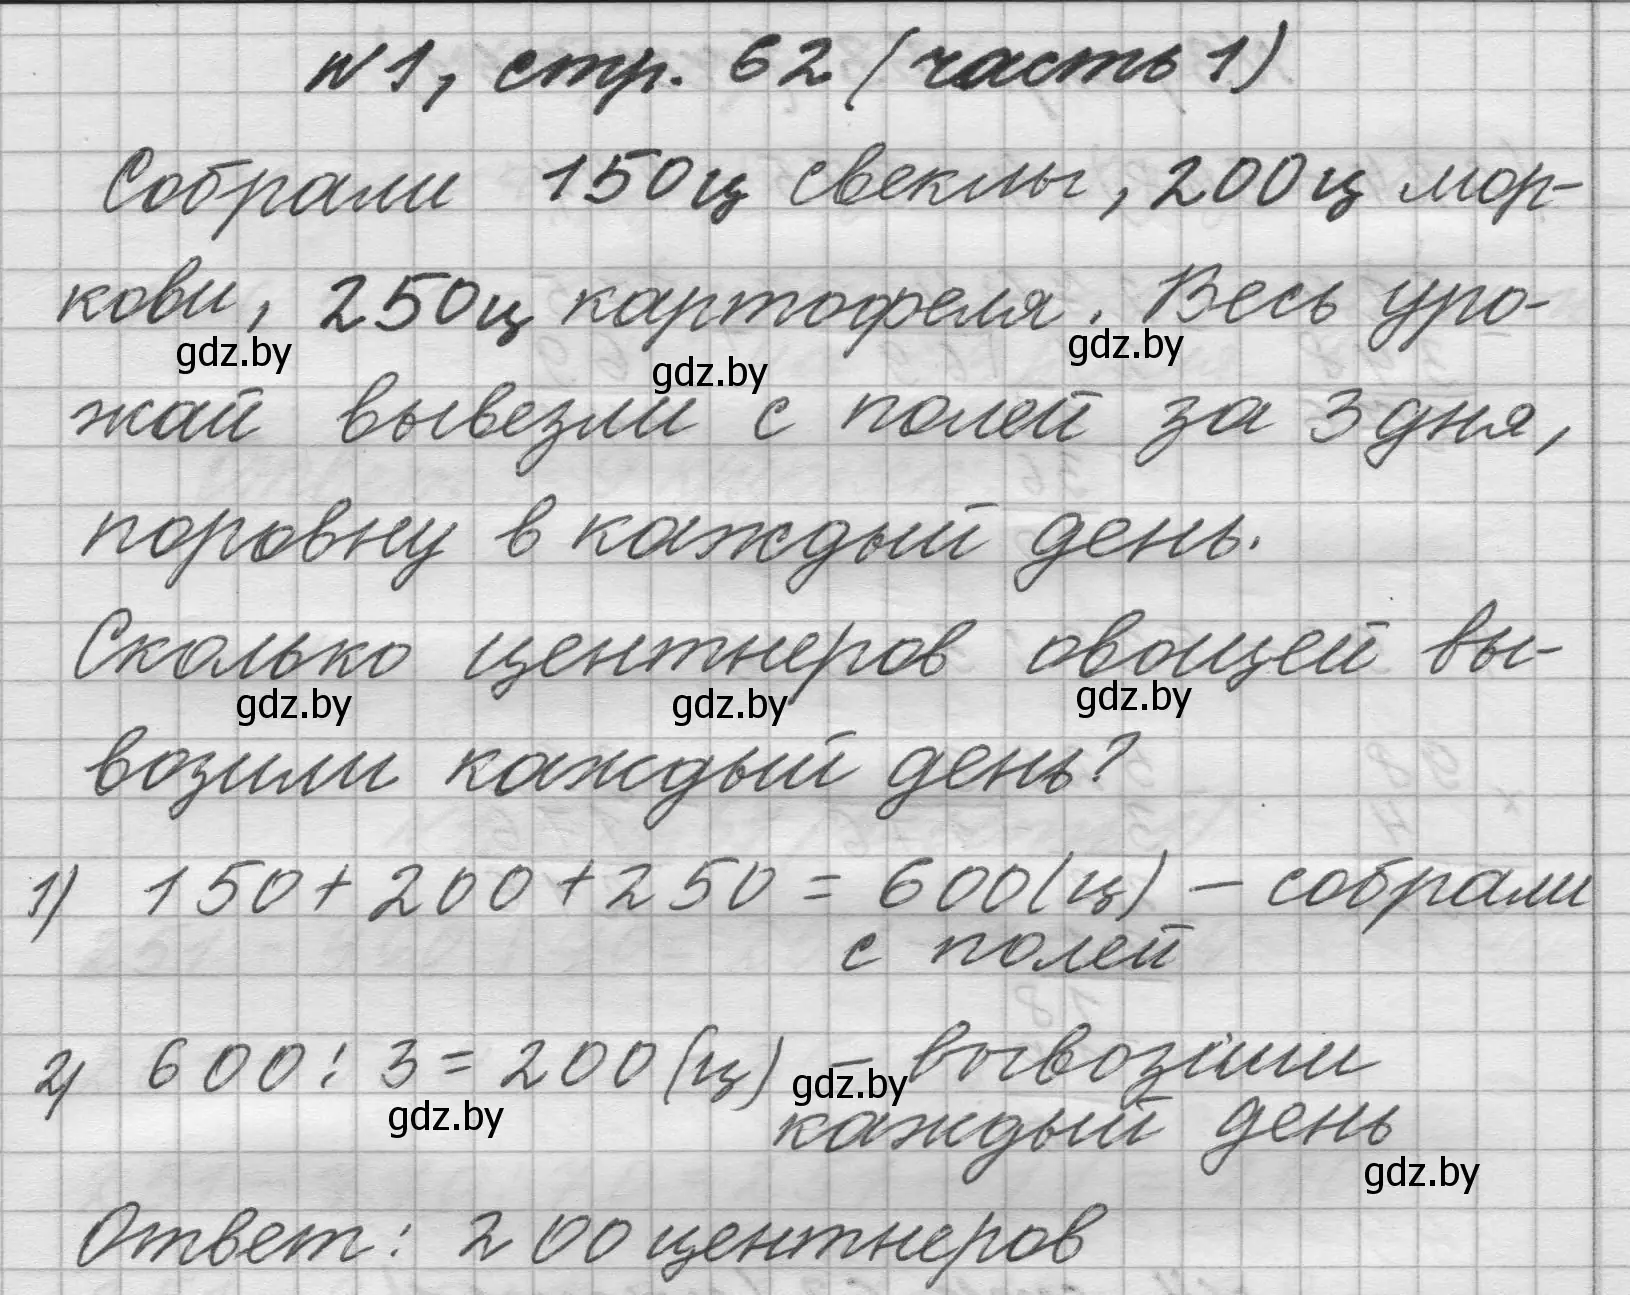 №1, стр. 62 (часть 1)
Собрали 150ц свеклы, 200ц мор-
кови, 250ц картофеля. Весь уро-
gdz.by gdz.by gdz.by
жай вывезли с полей за 3 дня,
поровну в каждый день.
Сколько центнеров овощей вы-
gdz.by gdz.by gdz.by
возили каждый день?
1) 150+200+250=600(ц) – собрали
с полей
2) 600:3=200(ц) – вывозили
gdz.by gdz.by
каждый день
gdz.by
Ответ: 200 центнеров